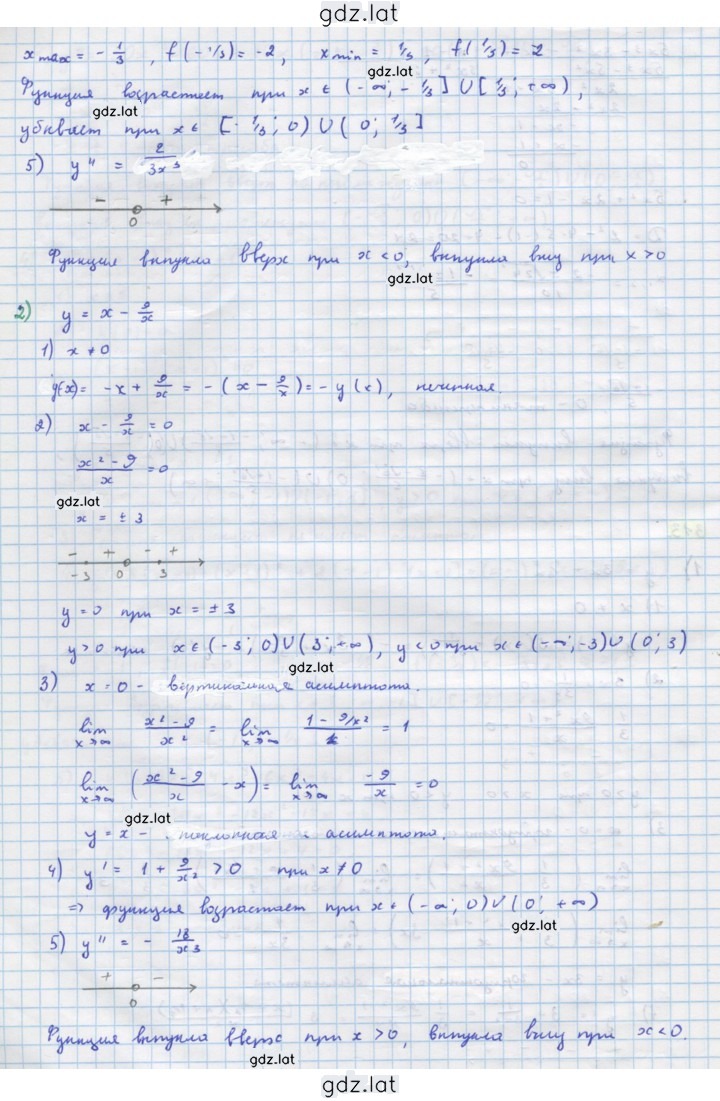 gdz.lat
x max = - 1/3 , f(-1/3) = -2, x min = 1/3, f(1/3) = 2
gdz.lat
Функция возрастает при x ∈ (-∞; -1/3] ∪ [1/3; +∞),
gdz.lat
убывает при x ∈ [-1/3; 0) ∪ (0; 1/3]
5) y'' = 2/3x³
- +
0
Функция выпукла вверх при x < 0, выпукла вниз при x > 0
gdz.lat
2) y = x - 9/x
1) x ≠ 0
y(x) = -x + 9/x = -(x - 9/x) = -y(x), нечетная.
2) x - 9/x = 0
(x² - 9)/x = 0
gdz.lat
x = ± 3
- + - +
-3 0 3
y = 0 при x = ± 3
y > 0 при x ∈ (-3; 0) ∪ (3; +∞), y < 0 при x ∈ (-∞; -3) ∪ (0; 3)
gdz.lat
3) x = 0 - вертикальная асимптота.
lim x→∞ (x² - 9)/x² = lim x→∞ (1 - 9/x²)/1 = 1
lim x→∞ ((x² - 9)/x - x) = lim x→∞ -9/x = 0
gdz.lat
y = x - наклонная асимптота.
4) y' = 1 + 9/x² > 0 при x ≠ 0
⇒ функция возрастает при x ∈ (-∞; 0) ∪ (0; +∞)
gdz.lat
5) y'' = - 18/x³
+ -
0
Функция выпукла вверх при x > 0, выпукла вниз при x < 0.
gdz.lat
gdz.lat